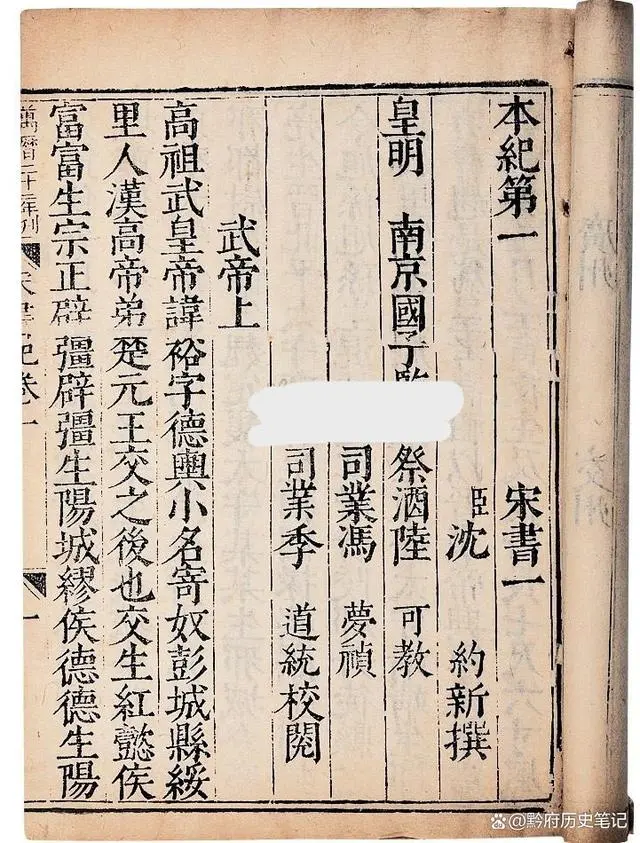 本紀第一 宋書一
臣沈 約新撰
皇明 南京國子監祭酒陸 可教
司業馮 夢禎
司業季 道統校閱
武帝上
高祖武皇帝諱裕字德輿小名寄奴彭城縣綏
里人漢高帝弟楚元王交之後也交生紅懿侯
富富生宗正辟彊辟彊生陽城繆侯德德生陽
萬曆二十二年刊
宋書 卷一
一
廣州
交州
黔府历史笔记